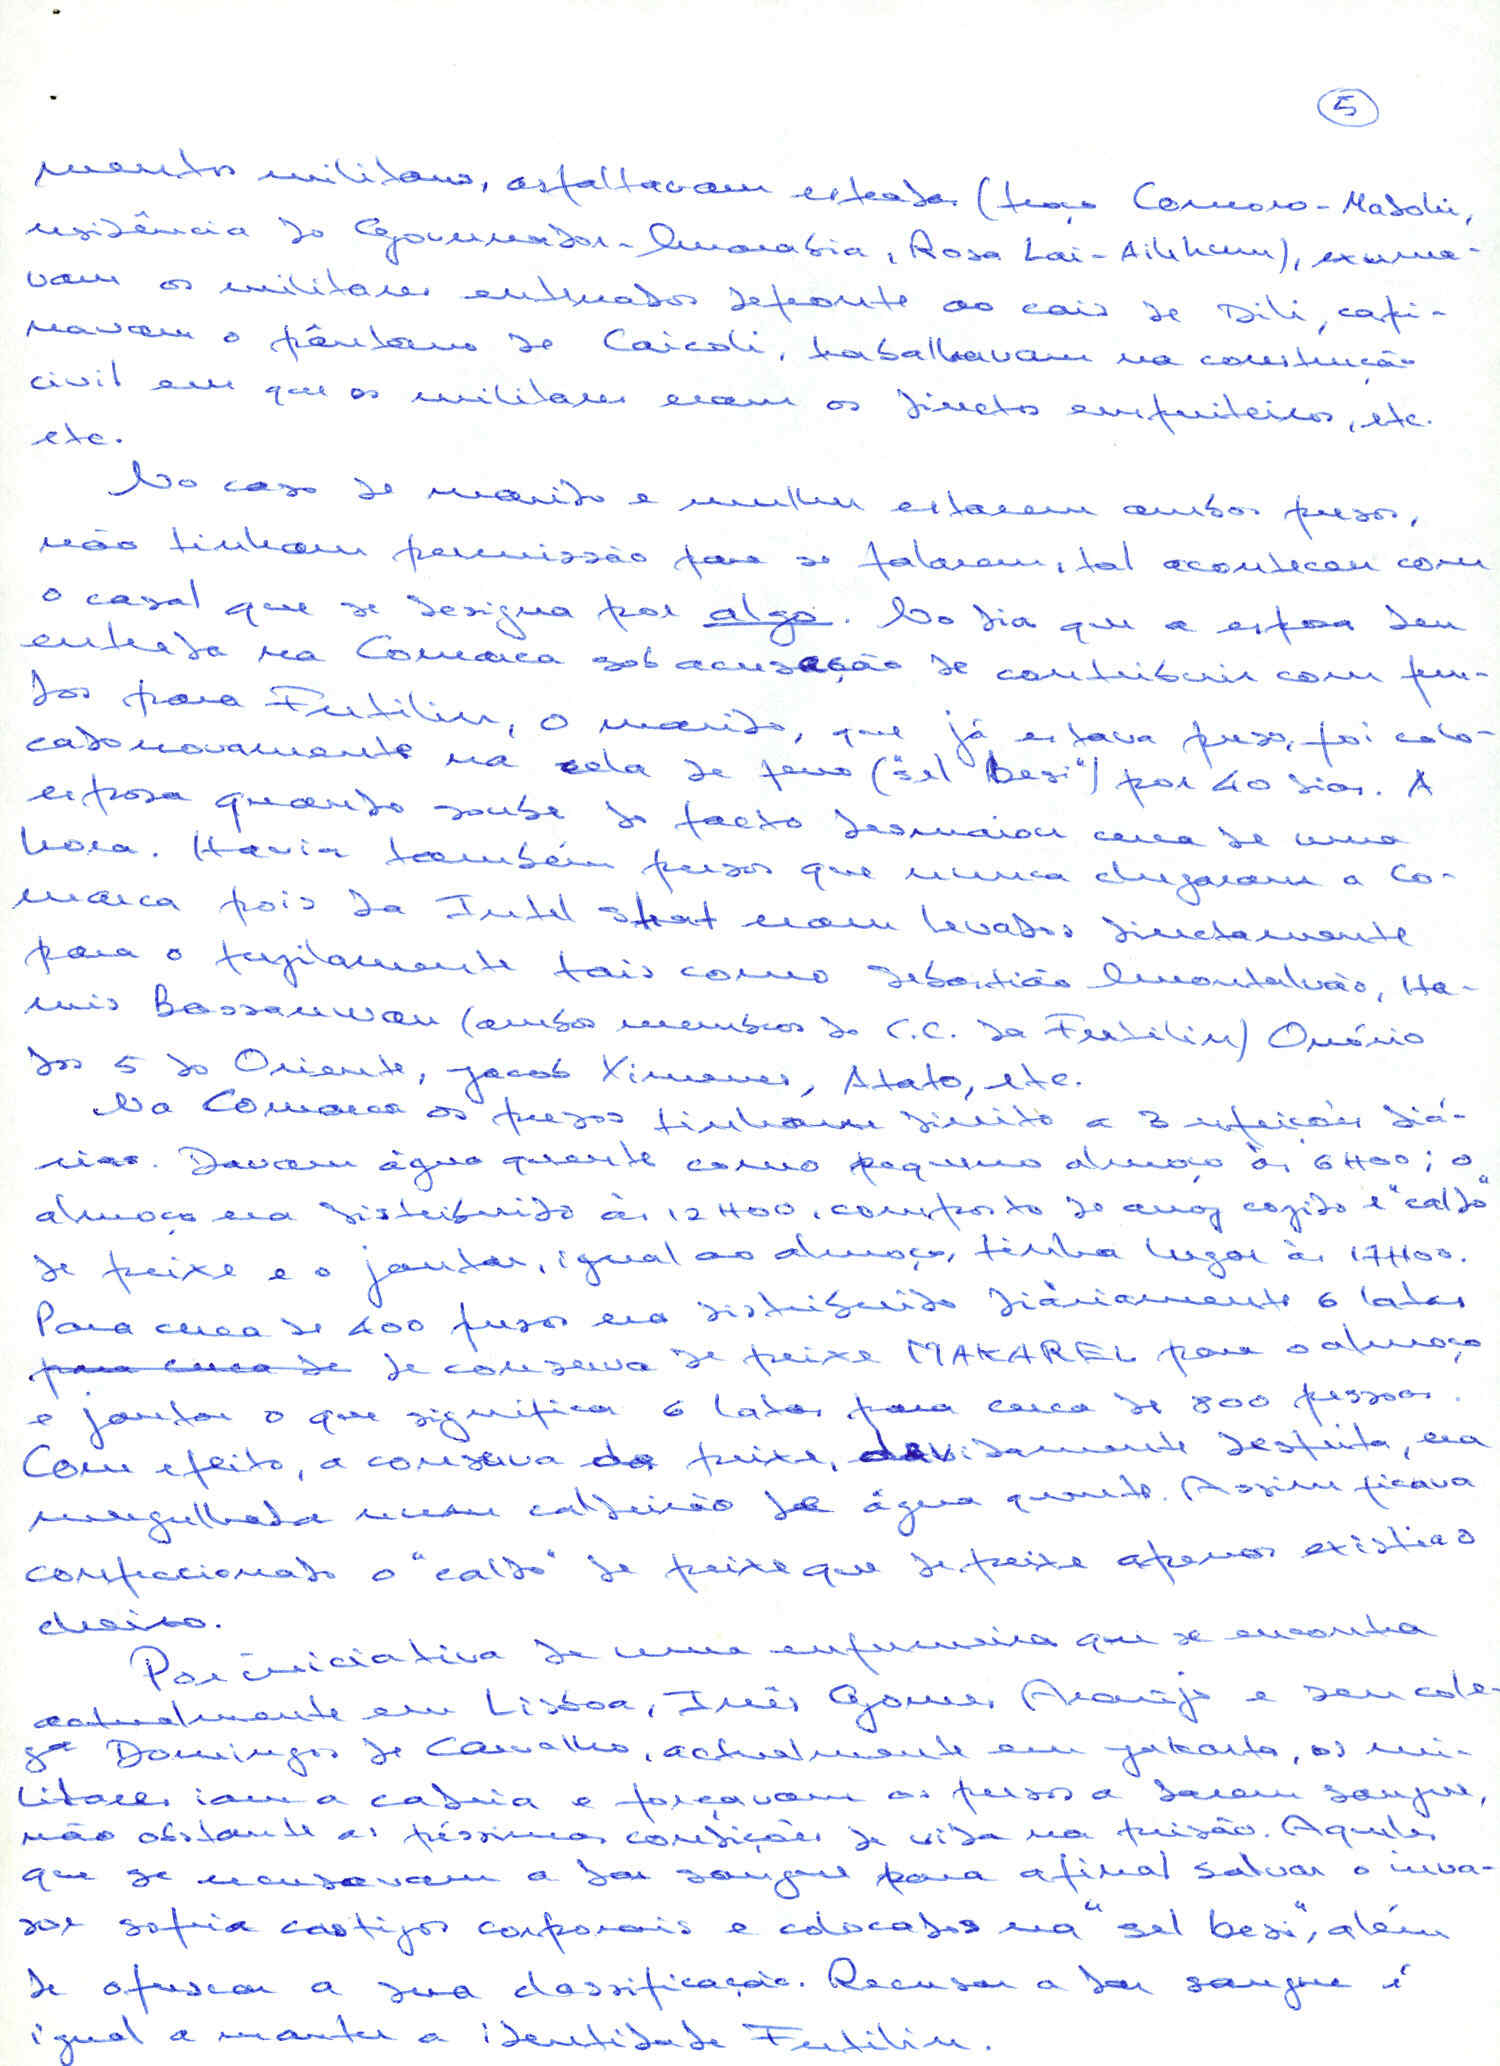 5
mentos militares, asfaltavam estradas (troço Comoro-Tasitolu,
residência do Governador-Marabia, Rosa Lai-Ailihun), exuma-
vam os militares enterrados defronte ao cais de Dili, capi-
navam o pântano de Caicoli, trabalhavam na construção
civil em que os militares eram os directos empreiteiros, etc.
etc.
No caso de marido e mulher estarem ambos presos,
não tinham permissão para se falarem, tal aconteceu com
o casal que se designa por algo. No dia que a esposa deu
entrada na Comarca sob acusação de contribuir com fun-
dos para Fretilin, o marido, que já estava preso, foi colo-
cado novamente na cela de ferro ("sel besi") por 40 dias. A
esposa quando soube do facto desmaiou cerca de uma
hora. Havia também presos que nunca chegaram a Co-
marca pois da Intel eram levados directamente
para o fuzilamento tais como Sebastião Montalvão, Ha-
mis Bassarewan (ambos membros do C.C. da Fretilin) Onório
dos 5 do Oriente, Jacob Ximenes, Atato, etc.
Na Comarca os presos tinham direito a 3 refeições diá-
rias. Davam água quente como pequeno almoço às 6H00; o
almoço era distribuido às 12H00, composto de arroz cozido e "caldo"
de peixe e o jantar, igual ao almoço, tinha lugar às 17H00.
Para cerca de 400 presos era distribuido diàriamente 6 latas
para cerca de de conserva de peixe MAKAREL para o almoço
e jantar o que significa 6 latas para cerca de 800 pessoas.
Com efeito, a conserva de peixe, devidamente desfeita, era
mergulhada num caldeirão de água quente. Assim ficava
confeccionado o "caldo" de peixe que de peixe apenas existia o
cheiro.
Por iniciativa de uma enfermeira que se encontra
actualmente em Lisboa, Inês Gomes Araújo e seu cole-
ga Domingos de Carvalho, actualmente em Jakarta, os mi-
litares iam a cadeia e forçavam os presos a darem sangue,
não obstante as péssimas condições de vida na prisão. Aqueles
que se recusavam a dar sangue para afinal salvar o inva-
sor sofria castigos corporais e colocados na "sel besi", além
de ofuscar a sua classificação. Recusar a dar sangue é
igual a manter a identidade Fretilin.